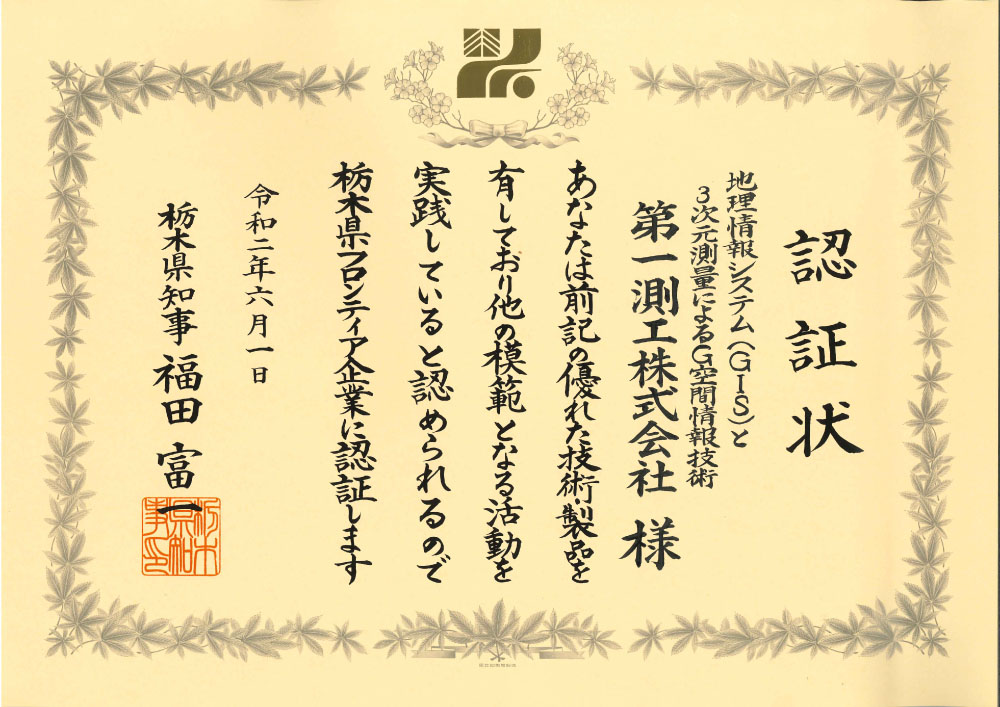 認証状
地理情報システム(GIS)と
3次元測量によるG空間情報技術
第一測工株式会社 様
あなたは前記の優れた技術・製品を
有しており他の模範となる活動を
実践していると認められるので
栃木県フロンティア企業に認証します
令和二年六月一日
栃木県知事 福田 富一
栃木県知事印